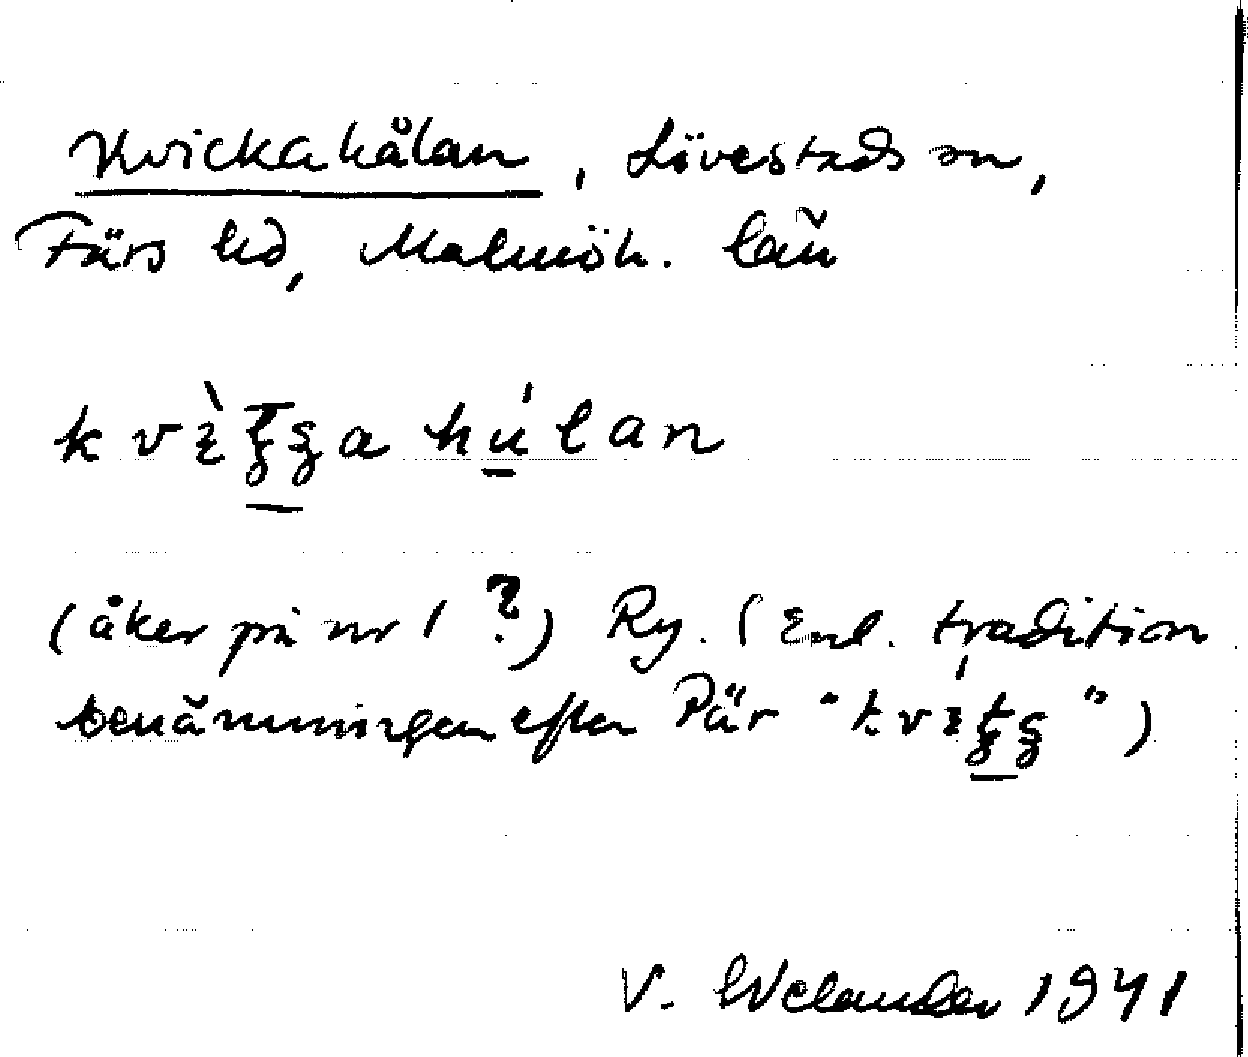 Kvickahålan, Lövestads sn,
Färs hd, Malmöh. län
(åker på nr 1 ?) Ry. (Enl. tradition
benämningen efter Pär " ")
V. Welander 1941